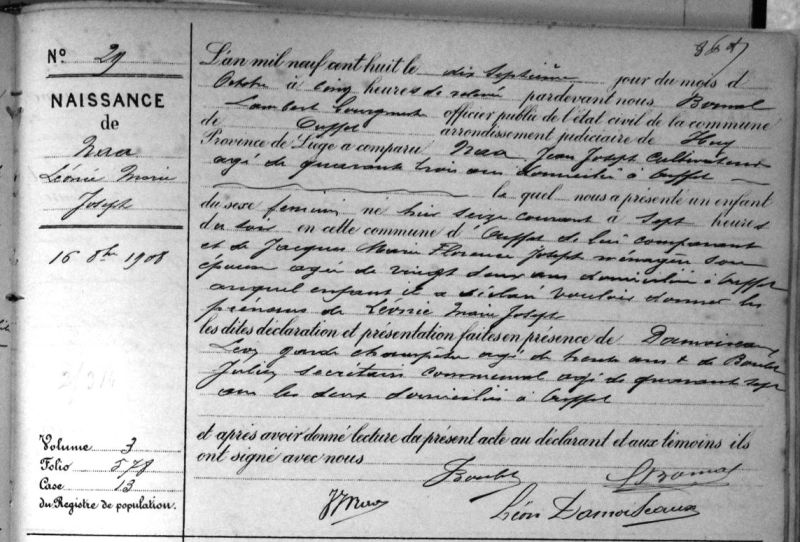 N° 29
NAISSANCE
de
Naa
Léonie Marie
Joseph
16 8bre 1908
2/314
Volume 3
Folio 578
Case 13
du Registre de population.
L'an mil neuf cent huit le dix septième jour du mois d
Octobre à cinq heures de relevée pardevant nous Bomal
Lambert officier public de l'état civil de la commune
de Ouffet arrondissement judiciaire de Huy
Province de Liège a comparu Naa Jean Joseph Cultivateur
agé de quarante trois ans domicilié à Ouffet
le quel nous a présenté un enfant
du sexe féminin né hier seize courant à sept heures
du soir en cette commune d'Ouffet de lui comparant
et de Jacques Marie Florence Joseph ménagère son
épouse agée de vingt deux ans domiciliée à Ouffet
auquel enfant il a déclaré vouloir donner les
prénoms de Léonie Marie Joseph
les dites déclaration et présentation faites en présence de Damoiseaux
Léon garde champêtre agé de trente ans & de
Julien secrétaire communal agé de quarante sept
ans les deux domiciliés à Ouffet
et après avoir donné lecture du présent acte au déclarant et aux témoins ils
ont signé avec nous
L Bomal
JJ Naa
Léon Damoiseaux